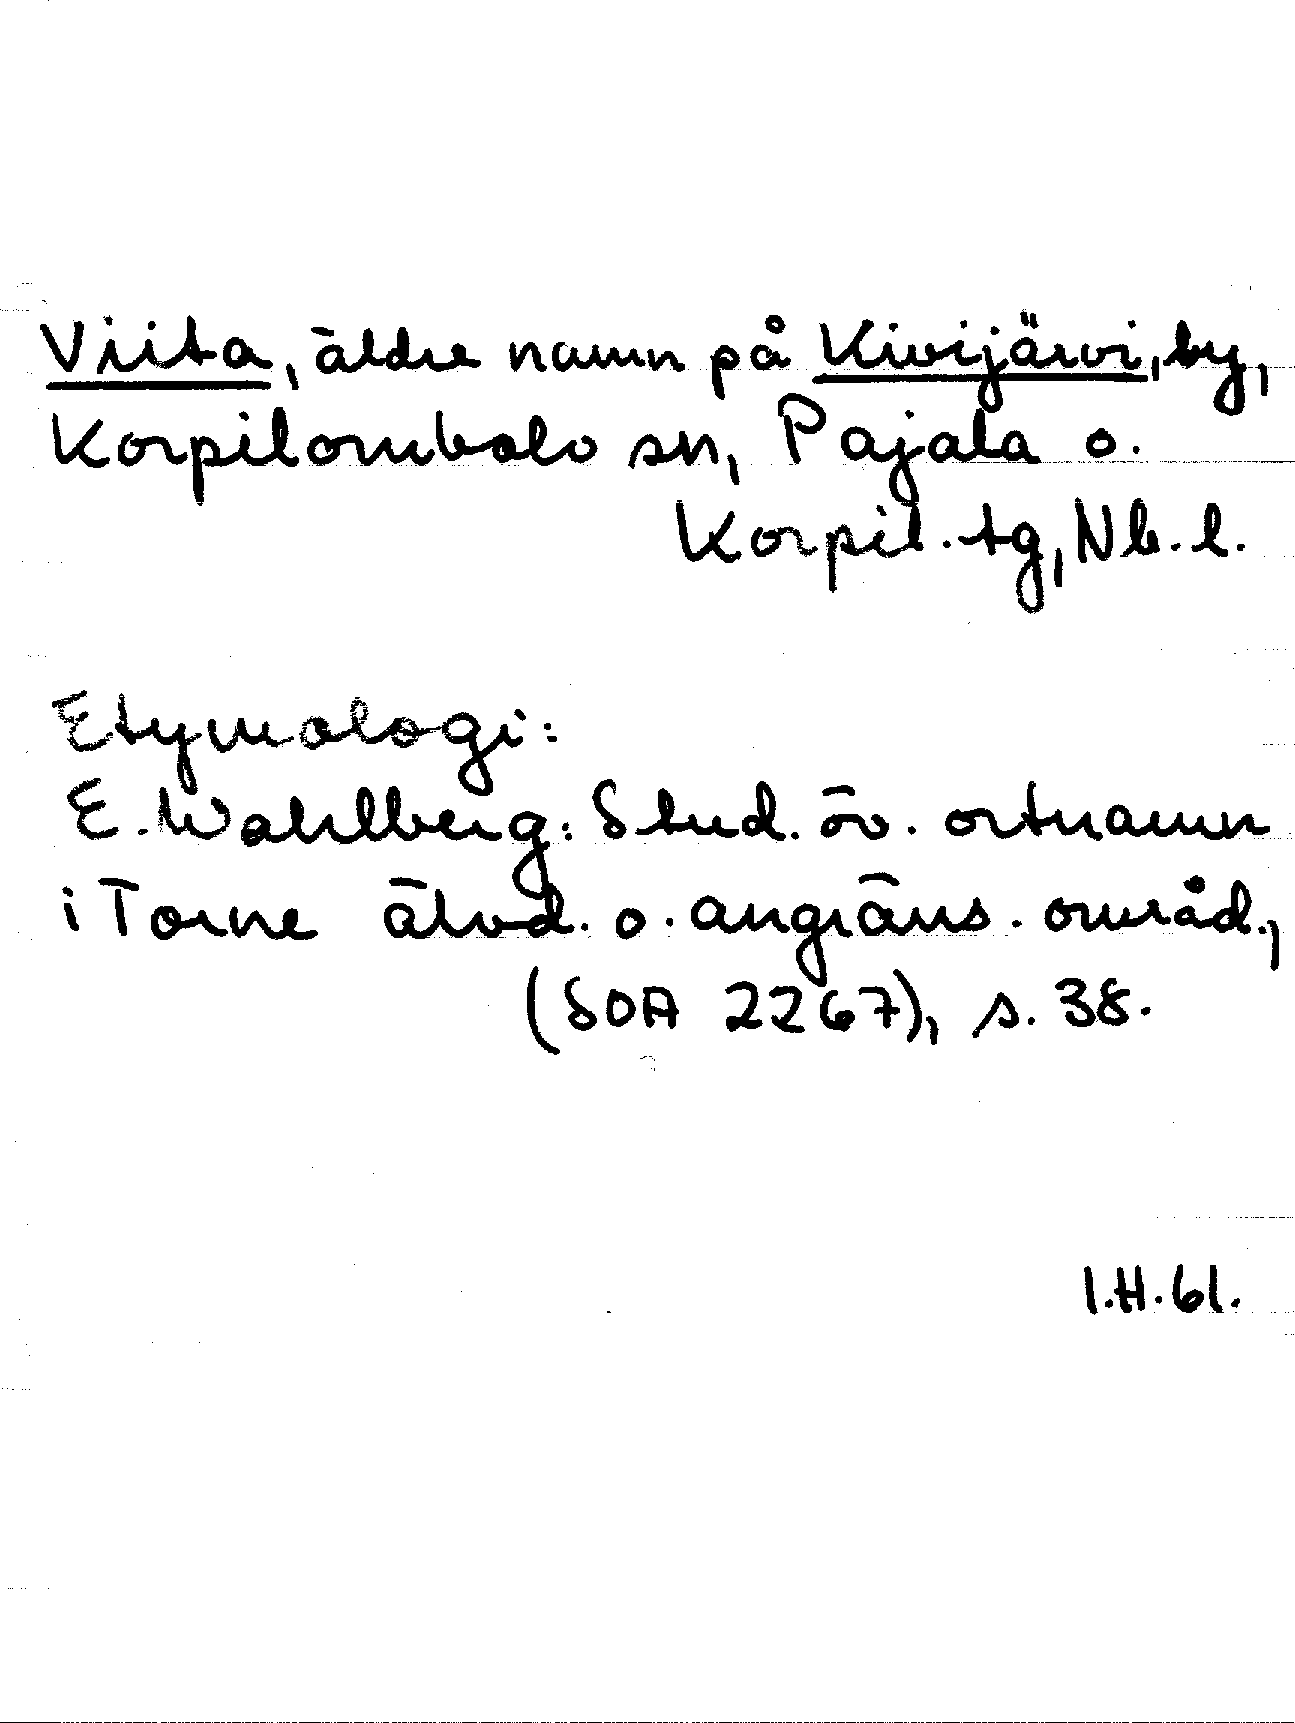 Viita, äldre namn på Kivijärvi, by,
Korpilombolo sn, Pajala o.
Korpil. tg, Nb. l.
Etymologi:
E. Wahlberg: Stud. öv. ortnamn
i Torne älvd. o. angräns. områd.,
(SOA 2267), s. 38.
I.H. 61.